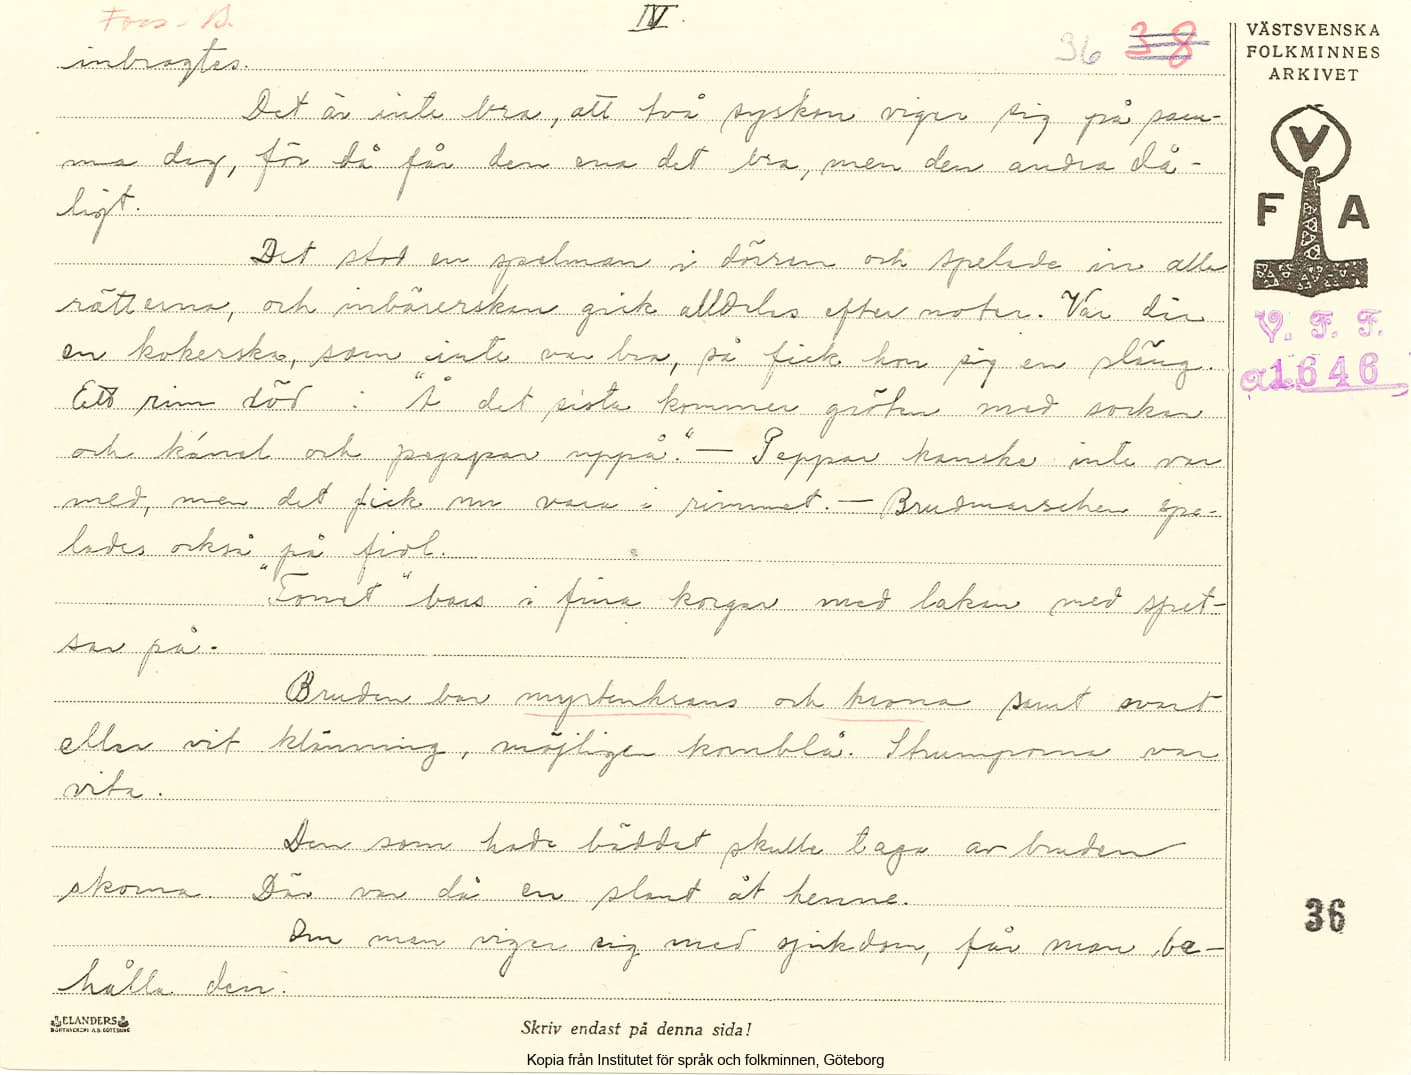 Foss - B.
IV.
36 38
inbragtes.
Det är inte bra, att två syskon viger sig på sam-
ma dag, för då får den ena det bra, men den andra då-
ligt.
Det stod en spelman i dörren och spelade in alla
rätterna, och inbärerskan gick alldeles efter noter. Var där
en kokerska, som inte var bra, så fick hon sig en släng.
Ett rim löd : "Å det sista kommer gröten med socker
och kánel och peppar uppå." — Peppar kanske inte var
med, men det fick nu vara i rimmet. — Brudmarschen spe-
lades också på fiol.
"Fornet" bars i fina korgar med lakan med spet-
sar på.
Bruden bar myrtenkrans och krona samt svart
eller vit klänning, möjligen kornblå. Strumporna var
vita.
Den som hade bäddat skulle taga av bruden
skorna. Där var då en slant åt henne.
Om man viger sig med sjukdom, får man be-
hålla den.
VÄSTSVENSKA
FOLKMINNES
ARKIVET
V
F A
V. F. F.
1646
36
ELANDERS
BOKTRYCKERI A.B. GÖTEBORG
Skriv endast på denna sida!
Kopia från Institutet för språk och folkminnen, Göteborg